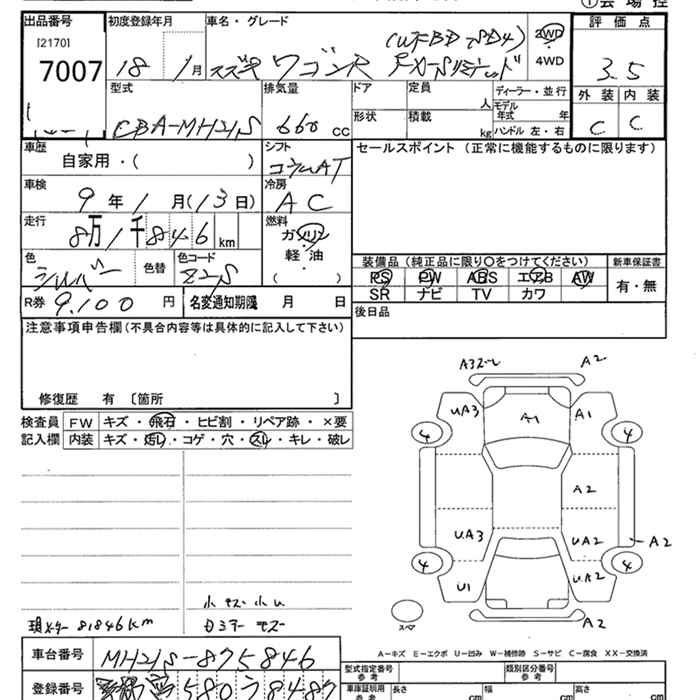 出品番号 初度登録年月 車名・グレード 2WD 評価点
[2170] 4WD
7007 18 1月 スズキ ワゴンR FX-Sリミテッド 3.5
型式 排気量 ドア 定員 人 ディーラー・並行 外装 内装
形状 積載 kg モデル年式 年
CBA-MH21S 660 CC ハンドル 左・右 C C
車歴 自家用・( ) シフト コラムAT セールスポイント (正常に機能するものに限ります)
車検 9年 1月(13日) 冷房 AC
走行 8万1千846km 燃料 ガソリン
軽油
( )
色 シルバー 色替 色コード Z2S 装備品 (純正品に限り○をつけてください) 新車保証書
PS PW ABS エアB AW 有・無
R券 9.100円 名変通知期限 月 日 SR ナビ TV カワ
注意事項申告欄(不具合内容等は具体的に記入して下さい) 後日品
修復歴 有 〔箇所 〕
検査員 FW キズ・飛石・ヒビ割・リペア跡・×要
記入欄 内装 キズ・汚れ・コゲ・穴・スレ・キレ・破レ
A3 A2
UA3 A1 A1
4 4
A2
UA3 UA2 A2
4 4
U1 UA2
A2
スペア
現メーター 81846km
A-キズ E-エクボ U-凹み W-補修跡 S-サビ C-腐食 XX-交換済
車台番号 MH21S-875846
型式指定番号 類別区分番号
参考 参考
登録番号 580 う 8487
車庫証明用 長さ 幅 高さ
参考 cm cm cm